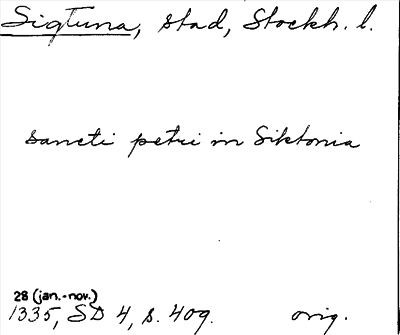 Sigtuna, stad, Stockh. l.
sancti petri in Siktonia
28 (jan.-nov.)
1335, SD 4, s. 409. orig.